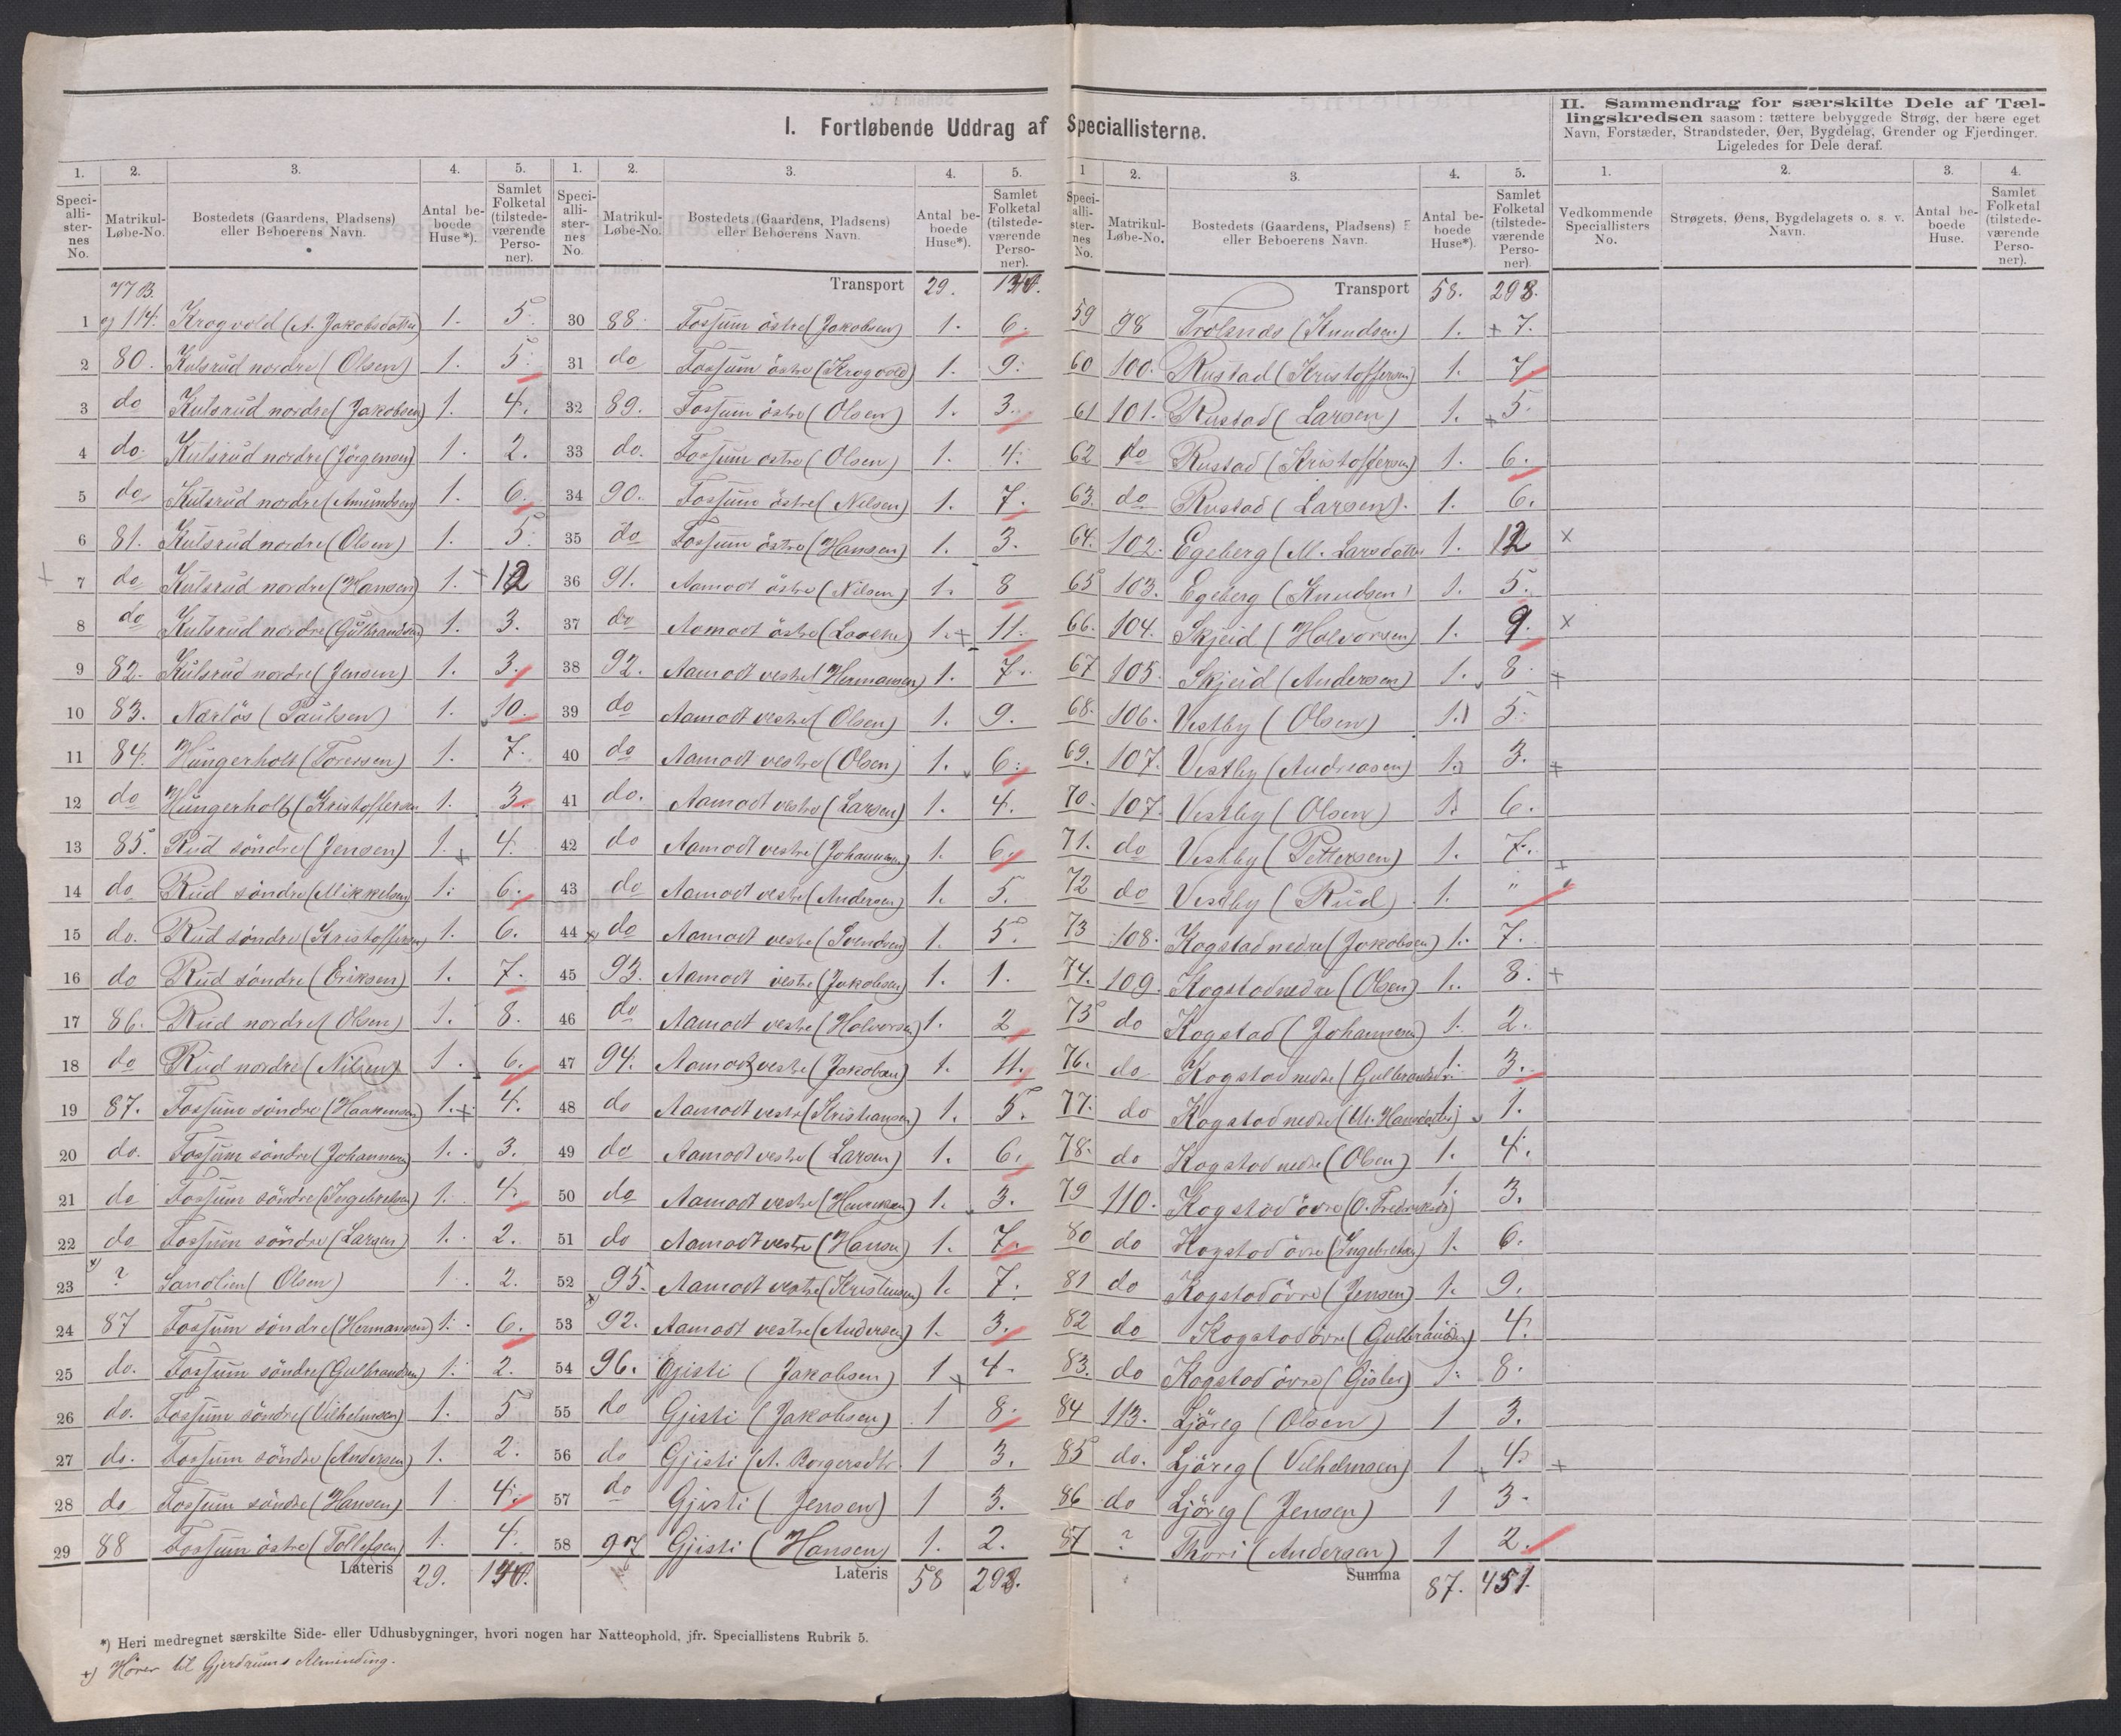 I. Fortløbende Uddrag af Speciallisterne.
II. Sammendrag for særskilte Dele af Tæl-
lingskredsen saasom: tættere bebyggede Strøg, der bære eget
Navn, Forstæder, Strandsteder, Øer, Bygdelag, Grender og Fjerdinger.
Ligeledes for Dele deraf.
1. 2. 3. 4. 5.
Speci-alli-ster-nes No. Matrikul-Løbe-No. Bostedets (Gaardens, Pladsens) eller Beboerens Navn. Antal be-boede Huse*). Samlet Folketal (tilstede-værende Perso-ner).
77B.
1 og 114. Krogvold (A. Jakobsdatter) 1. 5.
2 80. Kulsrud nordre (Olsen) 1. 5.
3 do Kulsrud nordre (Jakobsen) 1. 4.
4 do. Kulsrud nordre (Jörgensen) 1. 2.
5 do Kulsrud nordre (Amundsen) 1. 6.
6 81. Kulsrud nordre (Olsen) 1. 5.
7 do Kulsrud nordre (Hansen) 1. 12
8 do Kulsrud nordre (Gulbrandsen) 1. 3.
9 82. Kulsrud nordre (Jensen) 1. 3.
10 83. Narlös (Paulsen) 1. 10.
11 84. Hungerholt (Toressen) 1. 7.
12 do Hungerholt (Kristoffersen 1. 3.
13 85. Rud söndre (Jensen) 1. 4.
14 do Rud söndre (Mikkelsen) 1. 6.
15 do. Rud söndre (Kristoffersen) 1. 6.
16 do Rud söndre (Eriksen) 1. 7.
17 86. Rud nordre (Olsen) 1. 8.
18 do Rud nordre (Nilsen) 1. 6.
19 87. Fossum söndre (Haakensen) 1. 4.
20 do. Fossum söndre (Johannesen) 1. 3.
21 do Fossum söndre (Ingebretsen) 1. 4.
22 do Fossum söndre (Larsen) 1. 2.
23 x) ? Sandlien (Olsen) 1. 2.
24 87 Fossum söndre (Hermansen) 1. 6.
25 do. Fossum söndre (Gulbrandsen) 1. 2.
26 do. Fossum söndre (Vilhelmsen) 1. 5
27 do. Fossum söndre (Andersen) 1. 2.
28 do Fossum söndre (Hansen) 1 4.
29 88 Fossum östre (Tollefsen) 1. 4.
Lateris 29. 140.
1. 2. 3. 4. 5.
Speci-alli-ster-nes No. Matrikul-Løbe-No. Bostedets (Gaardens, Pladsens) eller Beboerens Navn. Antal be-boede Huse*). Samlet Folketal (tilstede-værende Perso-ner).
Transport 29. 140.
30 88. Fossum östre (Jakobsen) 1. 6.
31 do Fossum östre (Krogvold) 1. 9.
32 89. Fossum östre (Olsen) 1. 3.
33 do. Fossum östre (Olsen) 1. 4.
34 90. Fossum östre (Nilsen) 1. 7.
35 do Fossum östre (Hansen) 1. 3.
36 91. Aamodt östre (Nilsen) 1. 8
37 do Aamodt östre 1. 11.
38 92. Aamodt vestre (Hermansen) 1. 7.
39 do Aamodt vestre (Olsen) 1. 9.
40 do Aamodt vestre (Olsen) 1. 6.
41 do. Aamodt vestre (Larsen) 1. 4.
42 do Aamodt vestre (Johannesen) 1. 6.
43 do Aamodt vestre (Andersen) 1. 5.
44 x do Aamodt vestre (Svendsen) 1. 5.
45 93. Aamodt vestre (Jakobsen) 1. 1.
46 do Aamodt vestre (Halvorsen) 1. 2
47 94. Aamodt vestre (Jakobsen) 1. 11.
48 do Aamodt vestre (Kristiansen) 1. 5.
49 do Aamodt vestre (Larsen) 1. 6.
50 do Aamodt vestre (Henriksen) 1. 3.
51 do Aamodt vestre (Hansen) 1. 7.
52 95. Aamodt vestre (Kristensen) 1. 7.
53 x) 92. Aamodt vestre (Andersen) 1. 3.
54 96. Gjisti (Jakobsen) 1 4.
55 do Gjisti (Jakobsen) 1 8.
56 do Gjisti (A. Borgersdtr. 1 3.
57 do Gjisti (Jensen) 1 3.
58 97 Gjisti (Hansen) 1. 2.
Lateris 58 298.
1 2. 3. 4. 5.
Speci-alli-ster-nes No. Matrikul-Løbe-No. Bostedets (Gaardens, Pladsens) eller Beboerens Navn. Antal be-boede Huse*). Samlet Folketal (tilstede-værende Perso-ner).
Transport 58. 298.
59 98 (Knudsen) 1. + 7.
60 100. Rustad (Kristoffersen) 1. 7.
61 101. Rustad (Larsen) 1. 5.
62 do Rustad (Kristoffersen) 1. 6.
63. do Rustad (Larsen). 1. 6.
64. 102. Egeberg (M. Larsdatter 1. 12 x
65 103. Egeberg (Knudsen) 1. 5.
66. 104. Skjeid (Halvorsen) 1. 9. x
67 105. Skjeid (Andersen) 1. 8. +
68. 106. Vestby (Olsen) 1. 5.
69. 107. Vestby (Andreasen) 1. 3. +
70. 107. Vestby (Olsen) 1. 6.
71. do Vestby (Pettersen) 1. 7. +
72 do Vestby (Rud) 1. "
73 108. Kogstad nedre (Jakobsen) 1. 7.
74. 109. Kogstad nedre (Olsen) 1. 8. +
75 do Kogstad (Johannesen) 1. 2.
76. do Kogstad nedre (Gulbrandsdtr. 1. 3.
77. do Kogstad nedre (M. Hansdatter) 1. 1.
78. do Kogstad nedre (Olsen) 1. 4.
79 110. Kogstad övre (O. Fredriksdtr) 1. 3.
80 do Kogstad övre (Ingebretsen) 1. 6.
81 do Kogstad övre (Jensen) 1. 9.
82 do Kogstad övre (Gulbrandsen) 1. 4.
83. do Kogstad övre (Gisles) 1. 8.
84 113. Ljöreg (Olsen) 1 3.
85 do. Ljöreg (Vilhelmsen) 1 4. +
86 do Ljöreg (Jensen) 1 3.
87 ? Thori (Andersen) 1 2.
Summa 87. 451.
1. 2. 3. 4.
Vedkommende Speciallisters No. Strøgets, Øens, Bygdelagets o. s. v. Navn. Antal be-boede Huse. Samlet Folketal (tilstede-værende Perso-ner).
*) Heri medregnet særskilte Side- eller Udhusbygninger, hvori nogen har Natteophold, jfr. Speciallistens Rubrik 5.
x) Hører til Gjerdrums Alminding.